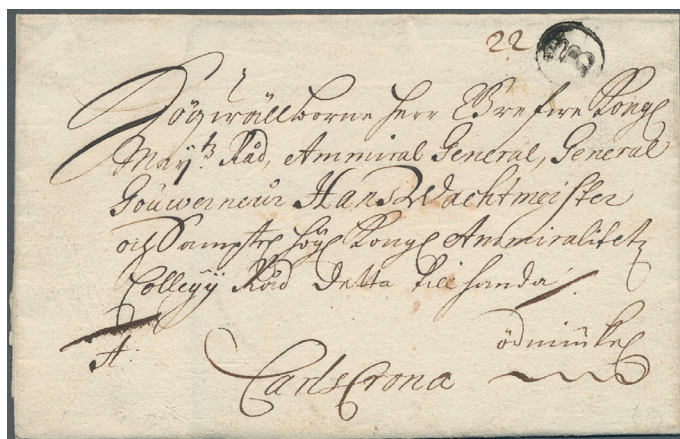 22
Högwällborne Herr Grefwe Kongl
Maytz Råd, Ammiral General, General
Gouwerneur Hans Wachtmeister
och Samptl hög Kongl Ammiralitetz
Collegij Råd detta till handa
ödmiukel
A:
CarlsCrona